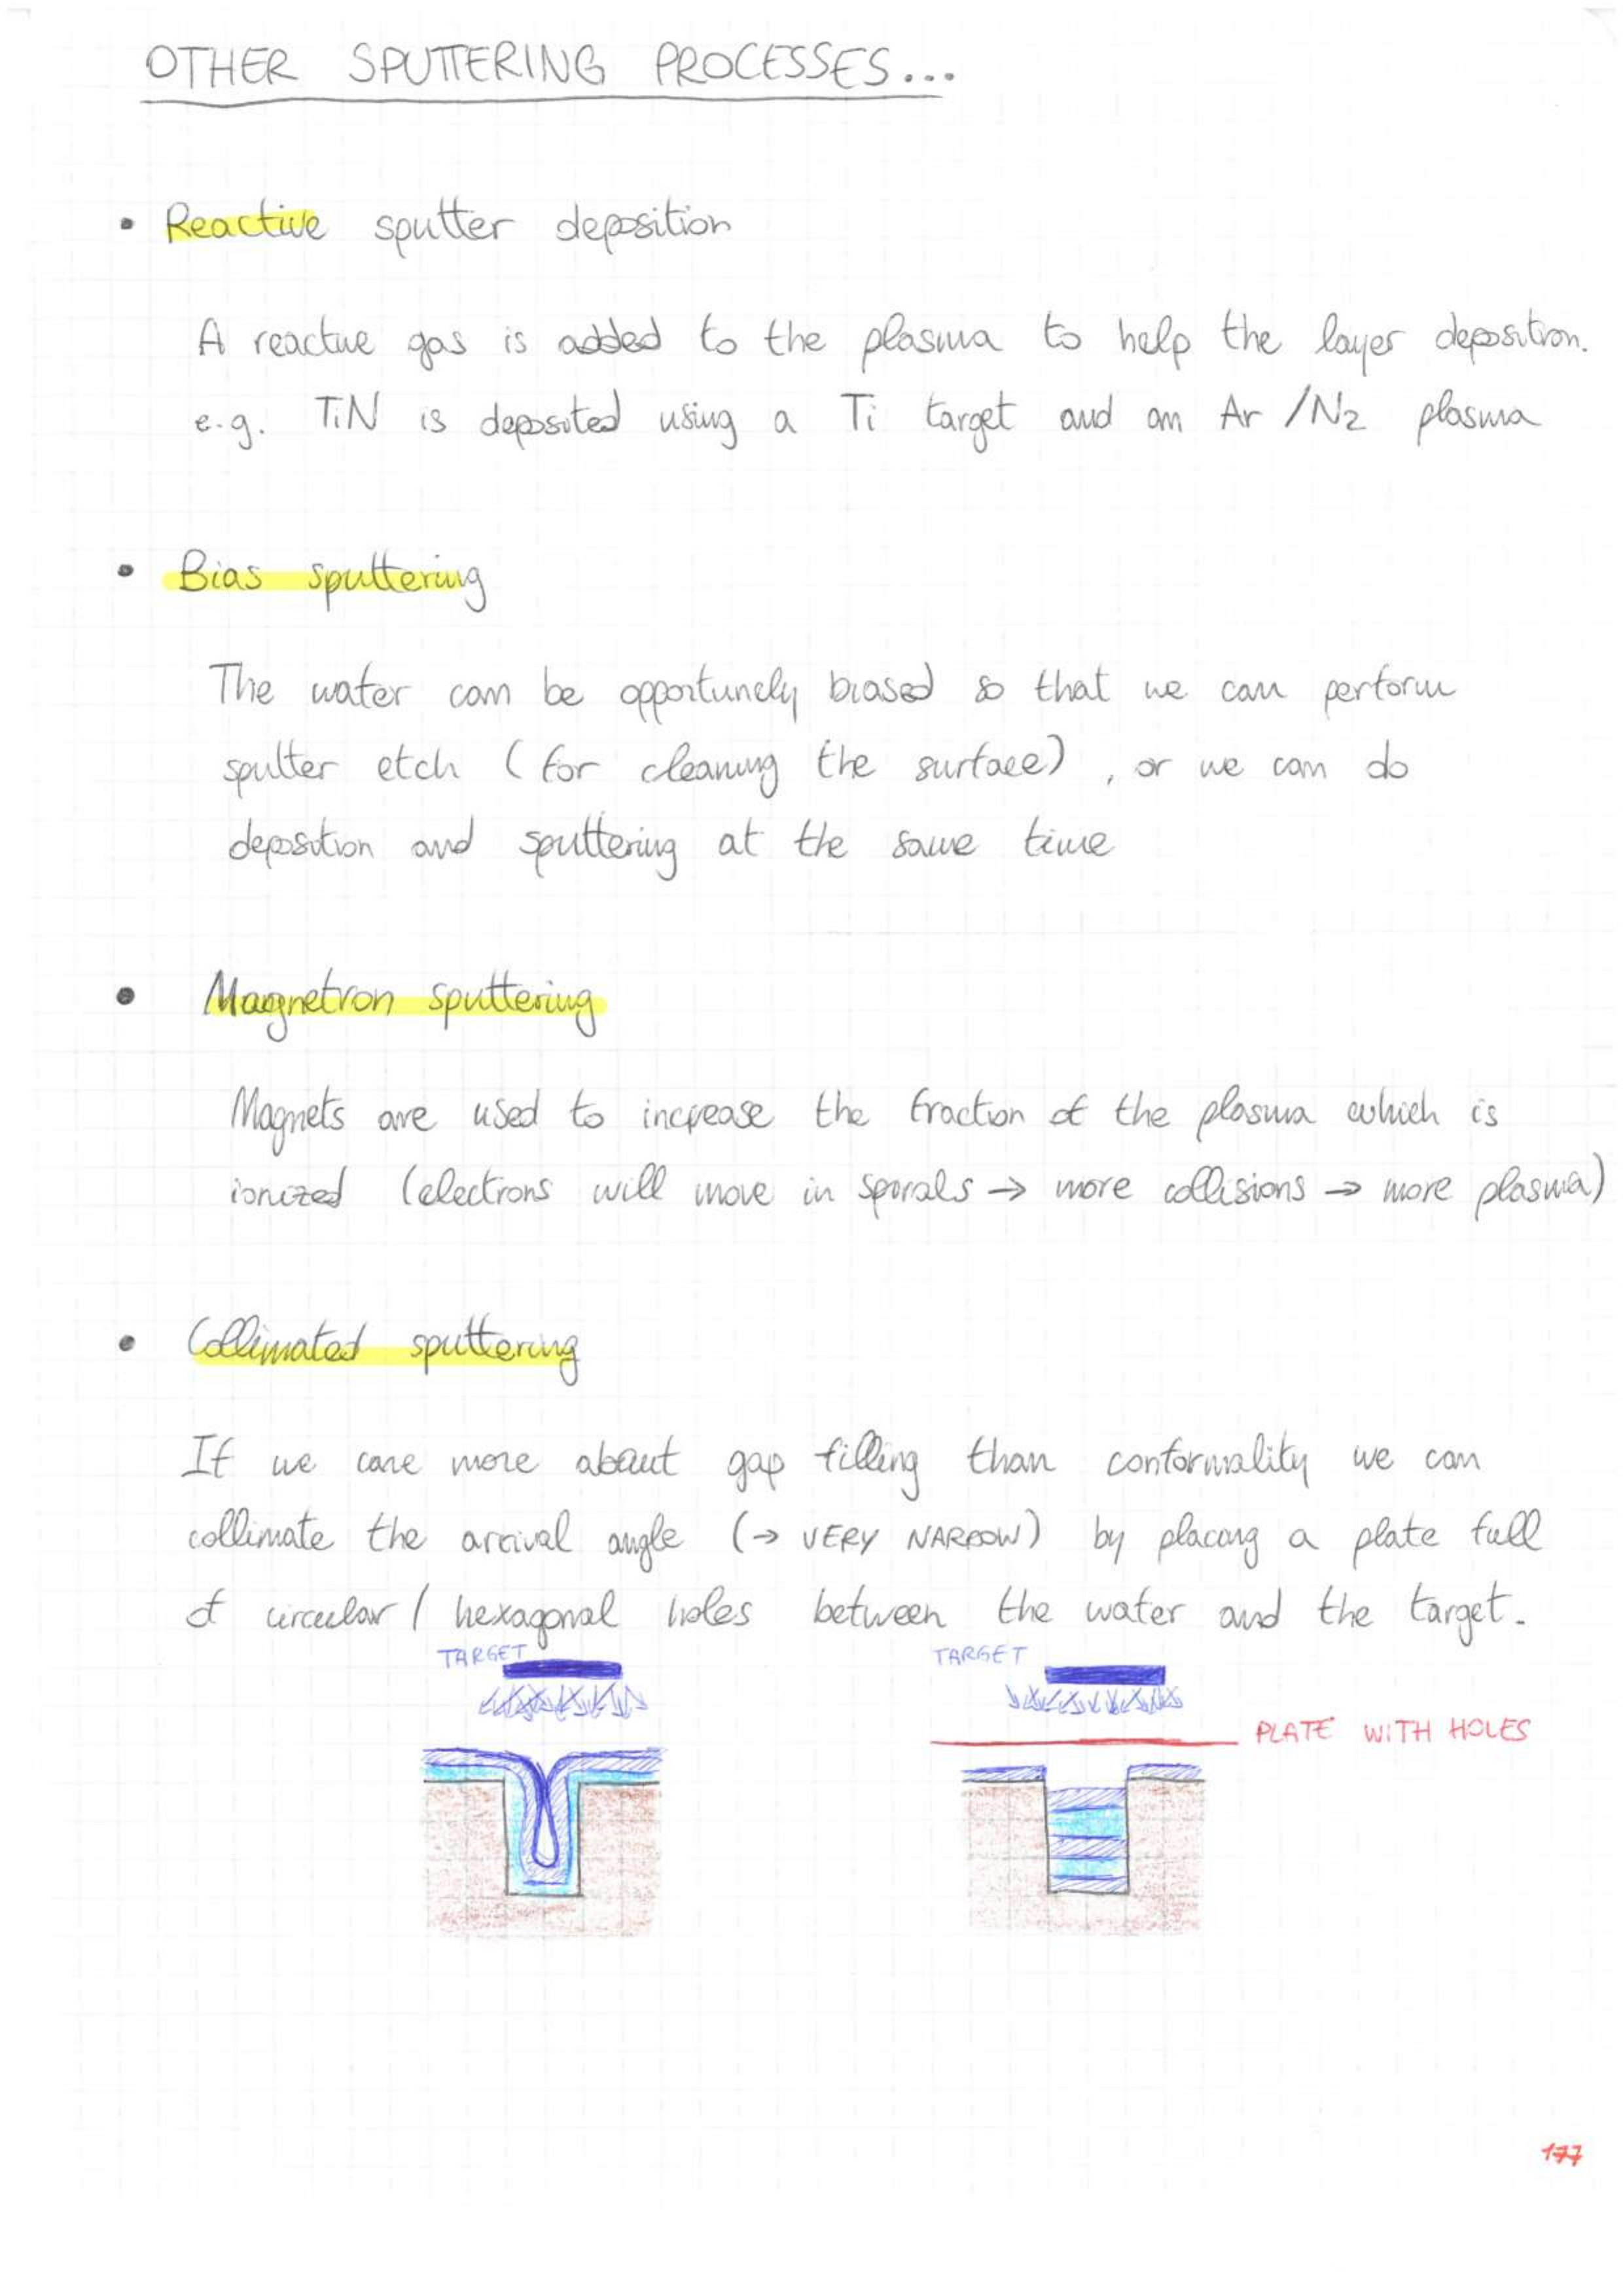 OTHER SPUTTERING PROCESSES...
• Reactive sputter deposition
A reactive gas is added to the plasma to help the layer deposition.
e.g. TiN is deposited using a Ti target and an Ar/N2 plasma
• Bias sputtering
The wafer can be opportunely biased so that we can perform
sputter etch (for cleaning the surface), or we can do
deposition and sputtering at the same time
• Magnetron sputtering
Magnets are used to increase the fraction of the plasma which is
ionized (electrons will move in spirals → more collisions → more plasma)
• Collimated sputtering
If we care more about gap filling than conformality we can
collimate the arrival angle (→ VERY NARROW) by placing a plate full
of circular / hexagonal holes between the wafer and the target.
TARGET
TARGET
PLATE WITH HOLES
177